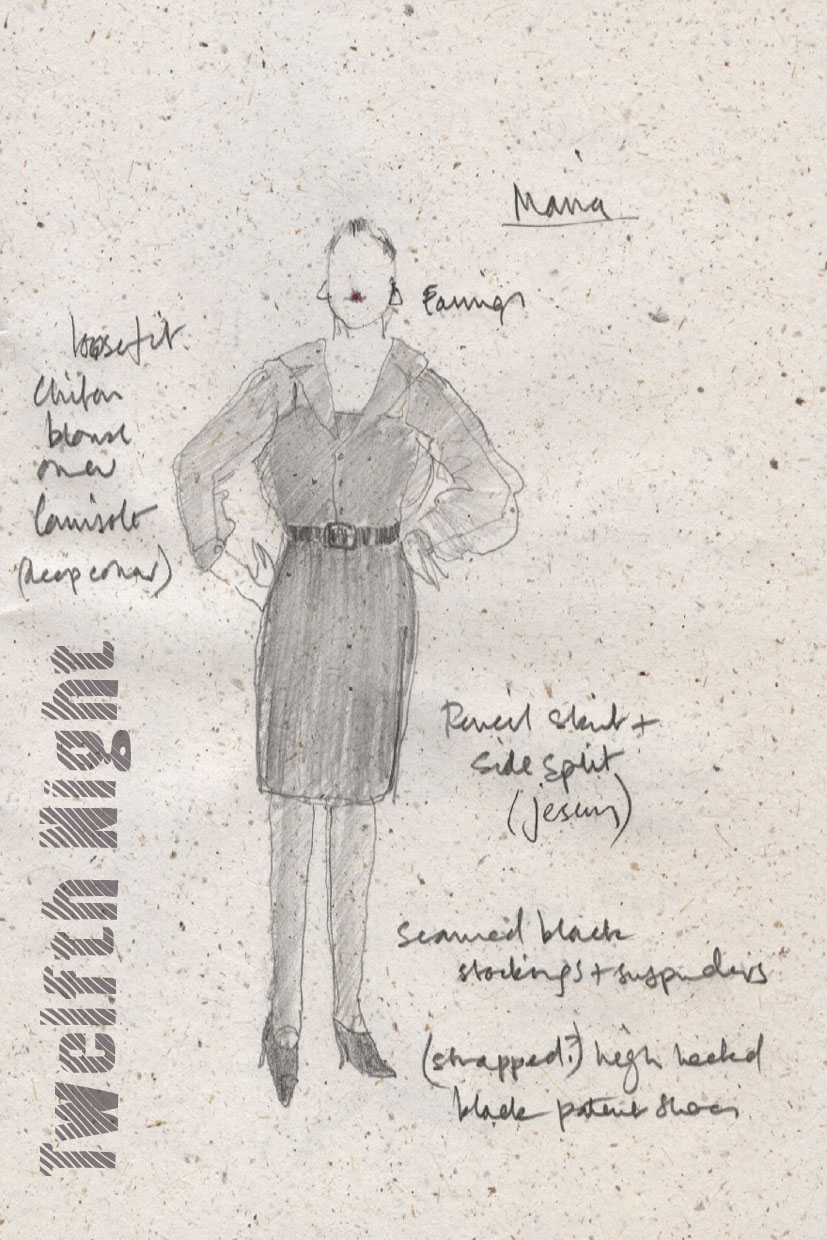 Maria
Earrings
loose fit
Chifon
blouse
over
Camisole
(deep collar)
Pencil skirt +
side split
(jersey)
Seamed black
stockings + suspenders
(strapped?) high heeled
black patent shoes
Twelfth Night